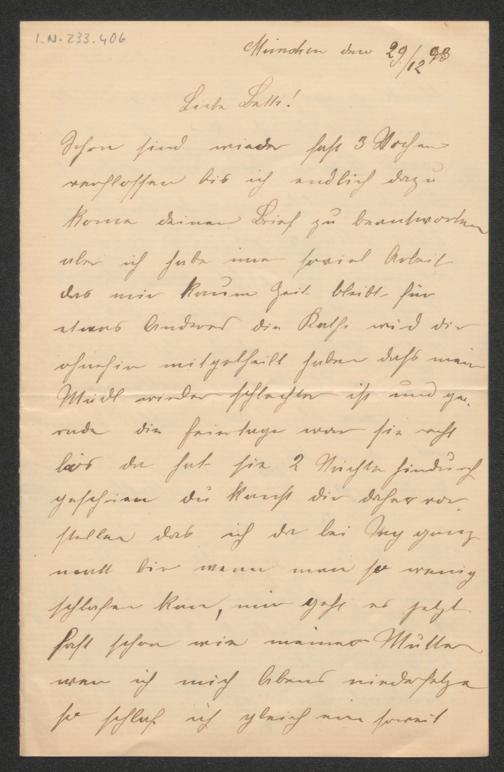 I.N. 233.406
München den 29/12 98
Liebe Betti!
Schon sind wieder fast 3 Wochen
verflossen bis ich endlich dazu
kome deinen Brief zu beantworten
aber ich habe imer soviel Arbeit
das mir kaum Zeit bleibt für
etwas Anderes die Kathi wird dir
ohnehin mitgetheilt haben dass mein
Mädl wieder schlechter ist und ge-
rade die Feiertage war sie recht
bös da hat sie 2 Nächte hindurch
geschrien du kanst dir daher vor-
stellen das ich da bei Tag ganz
matt bin wenn man so wenig
schlafen kan, mir geht es jetzt
fast schon wie meiner Mutter
wen ich mich Abens niedersetze
so schlaf ich gleich ein soweit